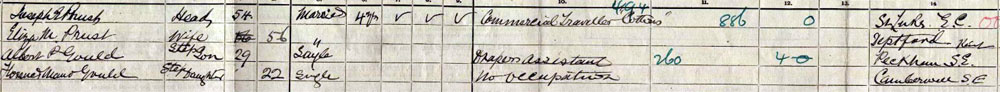 Joseph Prust Head 54 Married 4 yrs ✓ ✓ ✓ Commercial Traveller 494 886 0 St Lukes E.C.
Eliza M. Prust Wife 56 " Deptford Kent
Albert P Gould Step Son 29 Single Drapers Assistant 260 40 Peckham S.E.
Florence Maud Gould Step Daughter 22 Single No Occupation Camberwell S.E